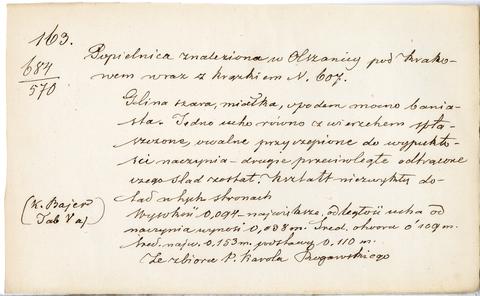 163.
684
570
Popielnica znaleziona w Olszanicy pod Krako-
wem wraz z krążkiem N. 607.
Glina szara, miałka, spodem mocno bania-
sta. Jedno ucho równo z wierzchem spła-
szczone, owalne przyczepione do wypukło-
ści naczynia - drugie przeciwległe odtrącone
czego ślad został. Kształt niezwykły do-
tąd w tych stronach
(K. Bajer
Tab Va)
Wysokość 0,094 - największa, odległość ucha od
naczynia wynosi 0,038 m. Śred. otworu 0'109 m.
Śred. najw. 0.153 m. podstawy 0.110 m.
Ze zbioru P. Karola Rogawskiego